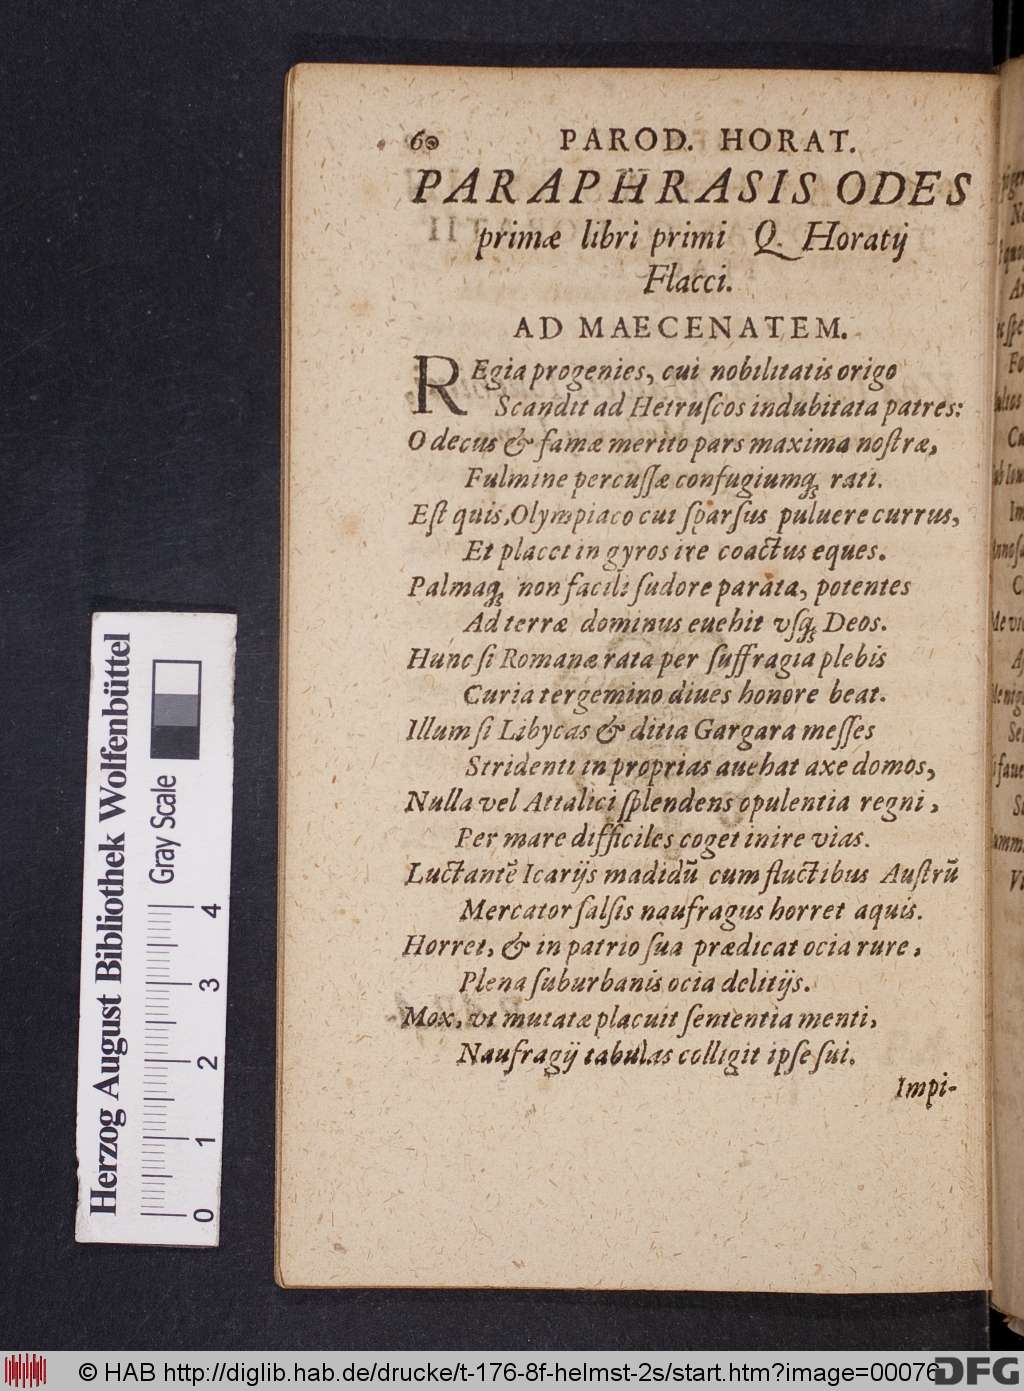 60 PAROD. HORAT.
PARAPHRASIS ODES
primæ libri primi Q. Horatij
Flacci.
AD MAECENATEM.
REgia progenies, cui nobilitatis origo
Scandit ad Hetruſcos indubitata patres:
O decus & famæ merito pars maxima noſtræ,
Fulmine percuſſæ confugiumq́; rati.
Eſt quis, Olympiaco cui ſparſus puluere currus,
Et placet in gyros ire coactus eques.
Palmaq́; non facili ſudore parata, potentes
Ad terræ dominus euehit vſq́; Deos.
Hunc ſi Romanæ rata per ſuffragia plebis
Curia tergemino diues honore beat.
Illum ſi Libycas & ditia Gargara meſſes
Stridenti in proprias auehat axe domos,
Nulla vel Attalici ſplendens opulentia regni,
Per mare difficiles coget inire vias.
Luctantẽ Icarijs madidũ cum fluctibus Auſtrũ
Mercator ſalſis naufragus horret aquis.
Horret, & in patrio ſua prædicat ocia rure,
Plena ſuburbanis ocia delitijs.
Mox, vt mutatæ placuit ſententia menti,
Naufragij tabulas colligit ipſe ſui.
Impi-
Herzog August Bibliothek Wolfenbüttel
Gray Scale
0 1 2 3 4
© HAB http://diglib.hab.de/drucke/t-176-8f-helmst-2s/start.htm?image=00076
DFG